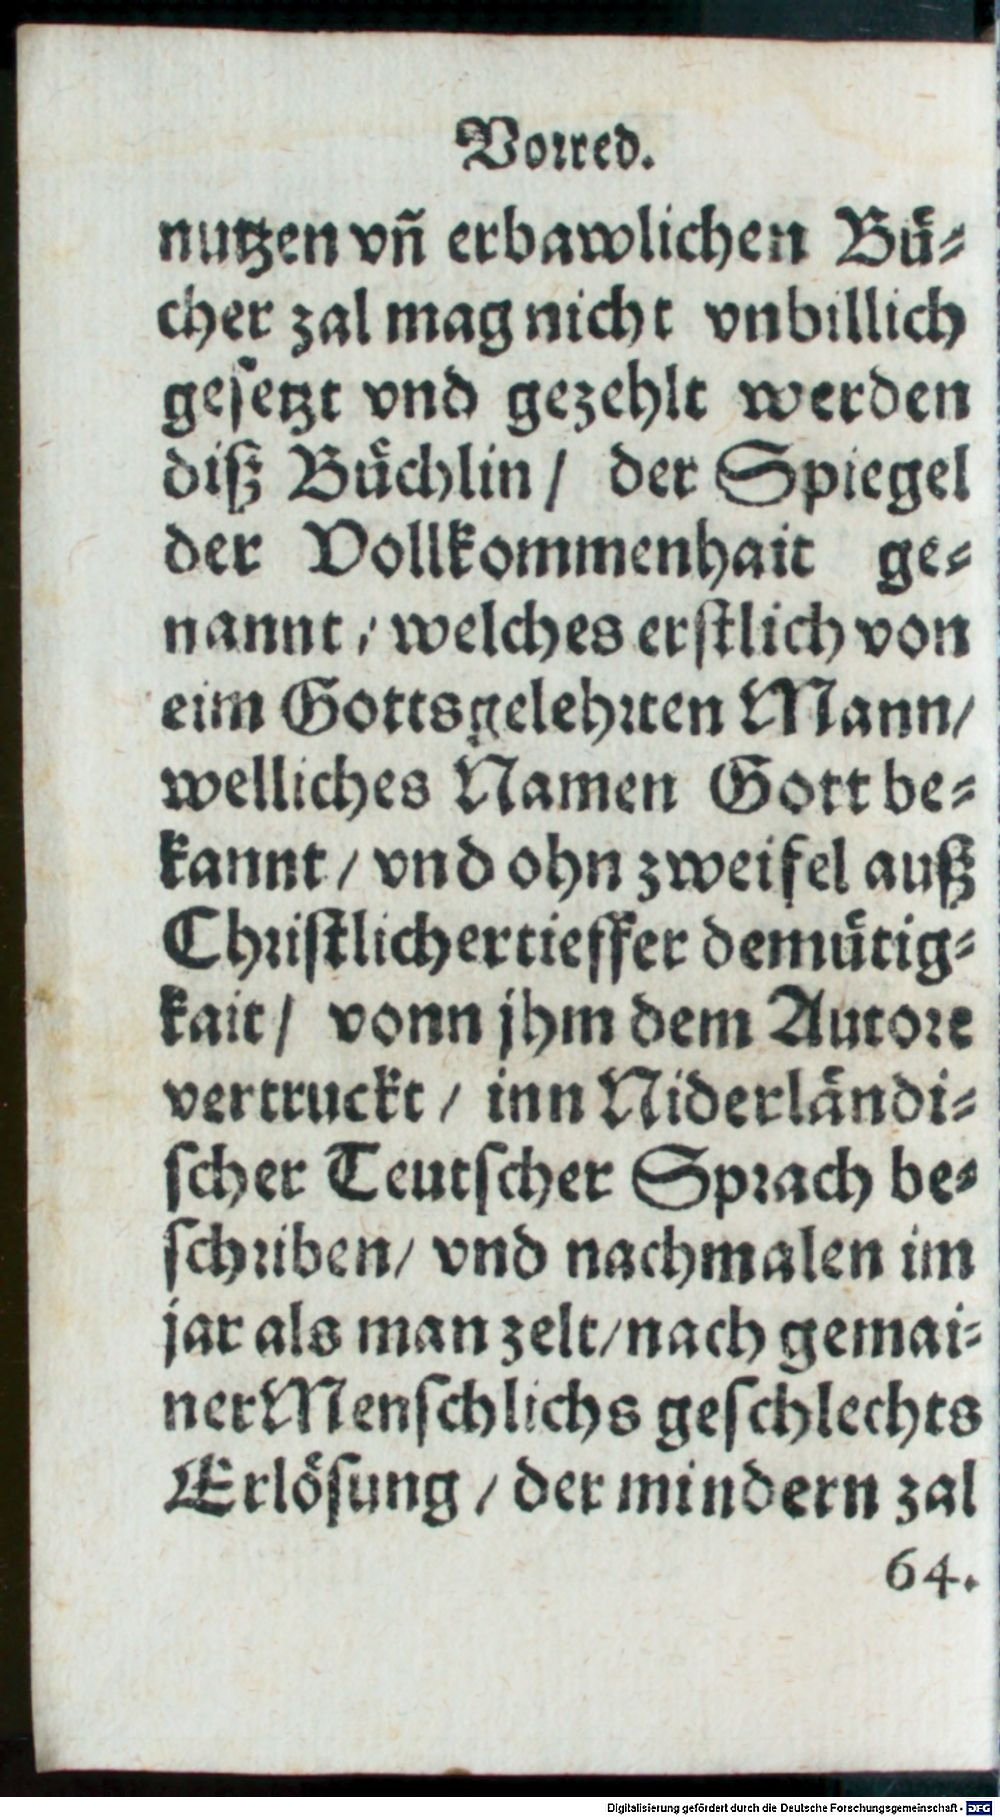 Vorred.
nutzen vñ erbawlichen Buͤ⸗
cher zal mag nicht vnbillich
geſetzt vnd gezehlt werden
diß Buͤchlin / der Spiegel
der Vollkommenhait ge⸗
nannt / welches erſtlich von
eim Gottsgelehꝛten Mann /
welliches Namen Gott be⸗
kannt / vnd ohn zweifel auß
Chꝛiſtlicher tieffer demuͤtig⸗
kait / vonn jhm dem Autoꝛe
vertruckt / inn Niderlaͤndi⸗
ſcher Teutſcher Spꝛach be⸗
ſchꝛiben / vnd nachmalen im
jar als man zelt / nach gemai⸗
ner Menſchlichs geſchlechts
Erloͤſung / der mindern zal
64.
Digitalisierung gefördert durch die Deutsche Forschungsgemeinschaft - DFG